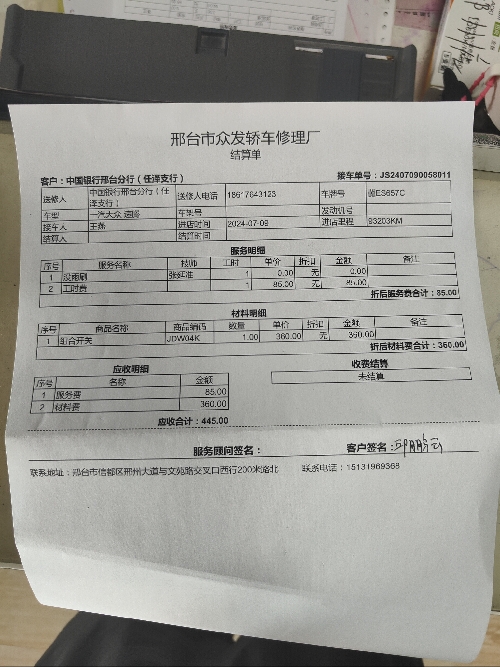 邢台市众发轿车修理厂
结算单
客户：中国银行邢台分行（任泽支行） 接车单号：JS2407090058011
送修人 中国银行邢台分行（任泽支行） 送修人电话 18617643123 车牌号 冀ES657C
车型 一汽大众 速腾 车架号 发动机号
接车人 王焕 进店时间 2024-07-09 进店里程 93203KM
结算人 结算时间
服务明细
序号 服务名称 技师 工时 单价 折扣 金额 备注
1 没雨刷 张延准 1 0.00 无 0.00
2 工时费 1 85.00 无 85.00
折后服务费合计：85.00
材料明细
序号 商品名称 商品编码 数量 单价 折扣 金额 备注
1 组合开关 JDW04K 1.00 360.00 无 360.00
折后材料费合计：360.00
应收明细 收费结算
序号 名称 金额 未结算
1 服务费 85.00
2 材料费 360.00
应收合计：445.00
服务顾问签名： 客户签名：
联系地址：邢台市信都区邢州大道与文苑路交叉口西行200米路北 联系电话：15131969368